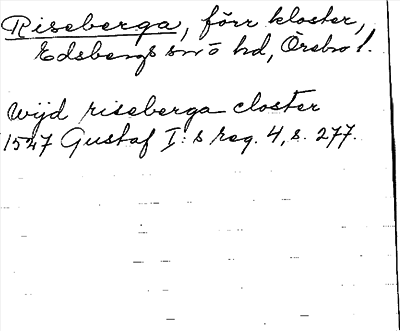 Riseberga, förr kloster,
Edsbergs hd, Örebro l.
wijd riseberga closter
1527 Gustaf I:s reg. 4, s. 277.